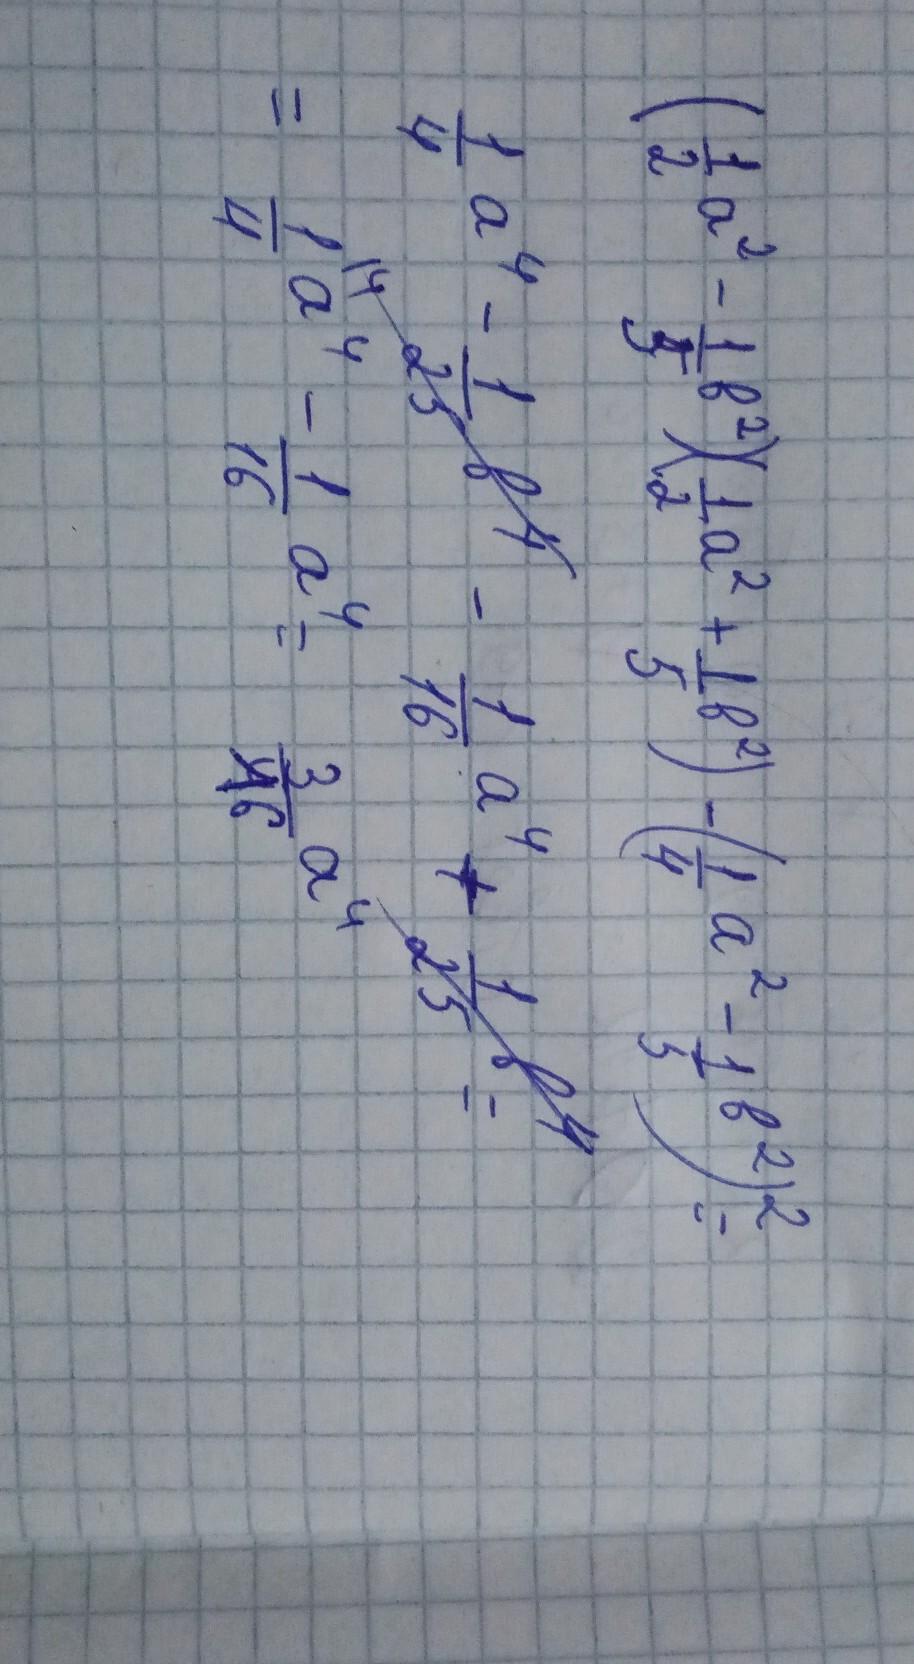 (1/2 a² - 1/5 b²)(1/2 a² + 1/5 b²) - (1/4 a² - 1/5 b²)² =
1/4 a⁴ - 1/25 b⁴ - 1/16 a⁴ + 1/25 b⁴ =
= 1/4 a⁴ - 1/16 a⁴ = 3/16 a⁴